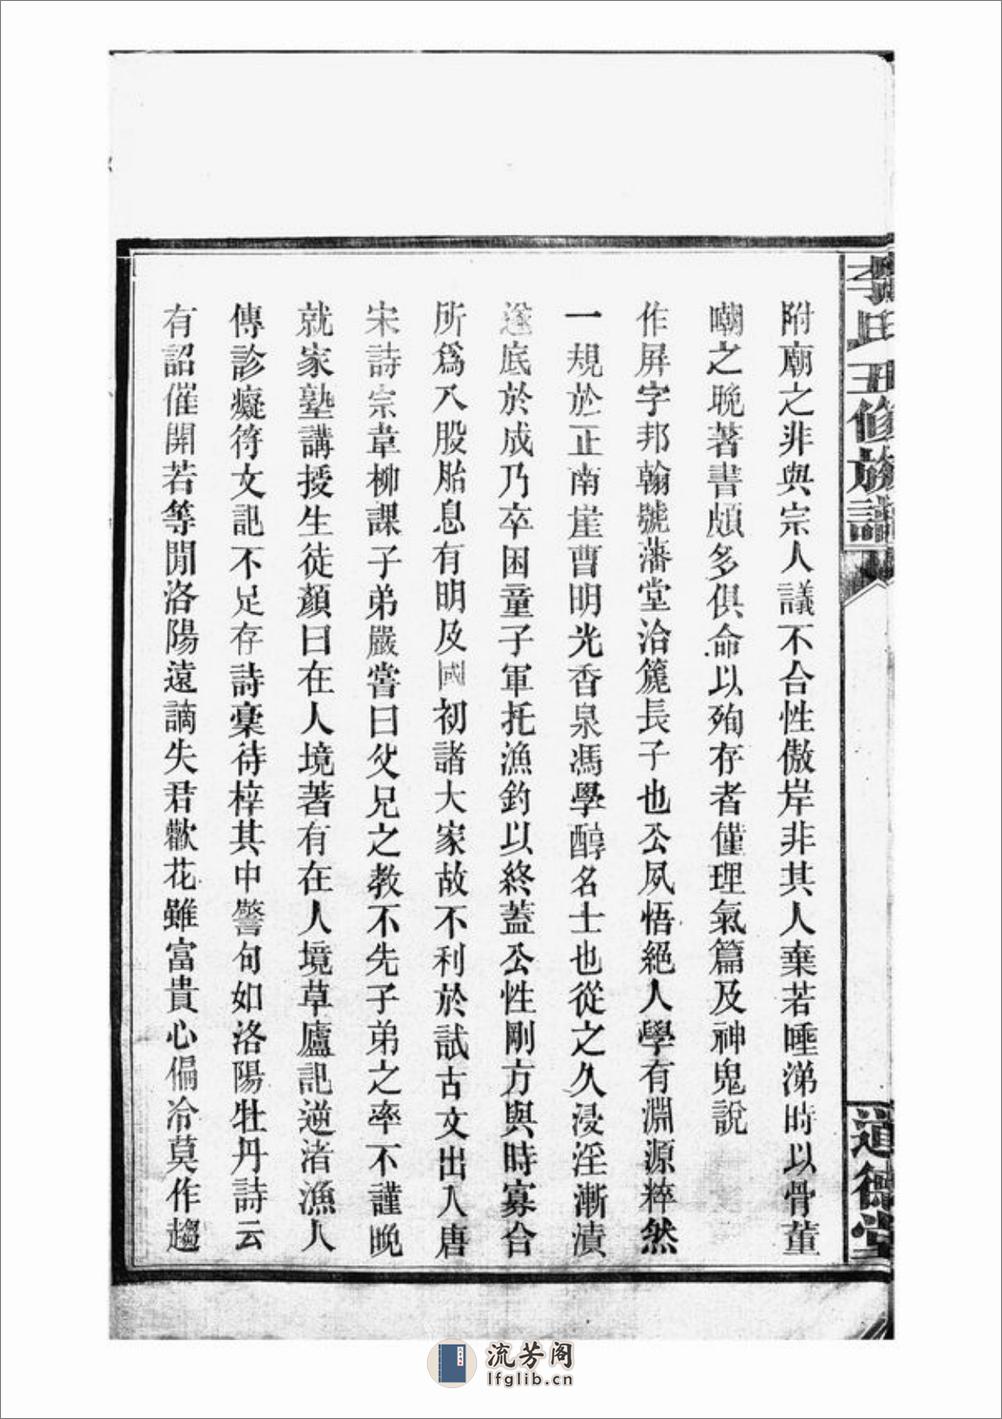 李氏五修族譜
道德堂
附廟之非與宗人議不合性傲岸非其人棄若唾涕時以骨董
嘲之晚著書頗多俱命以殉存者僅理氣篇及神鬼說
作屏字邦翰號藩堂洽簏長子也公夙悟絕人學有淵源粹然
一規於正南崖曹明光香泉馮學醇名士也從之久浸淫漸漬
遂底於成乃卒困童子軍托漁釣以終蓋公性剛方與時寡合
所爲八股胎息有明及國初諸大家故不利於試古文出入唐
宋詩宗韋柳課子弟嚴嘗曰父兄之教不先子弟之率不謹晚
就家塾講授生徒顏曰在人境著有在人境草廬記逆渚漁人
傳診癡符文記不足存詩稾待梓其中警句如洛陽牡丹詩云
有詔催開若等閒洛陽遠謫失君歡花雖富貴心偏冷莫作趨
流芳阁
lfglib.cn